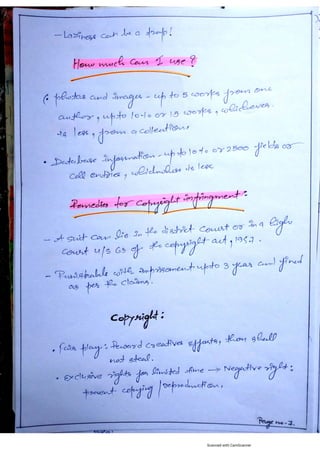 - Laziness can be a trap!
How much Can I use?
• photos and images - up to 5 works from one
author, upto 10% or 15 works, whichever
is less, from a collections
• Database information - up to 10% or 2500 fields or
cell entries, whichever is less
Remedies for Copyright infringment:
- A suit can lie in the district Court or in a high
Court u/s 65 of the copyright act, 1957.
- Punishable with imprisonment upto 3 years and fined
as per the claims.
Copyright:
• Fair play: Reward creative efforts, thou shall
not steal.
• Exclusive rights for limited time → Negative right:
prevent copying / reproduction.
Page no-2.
Scanned with CamScanner